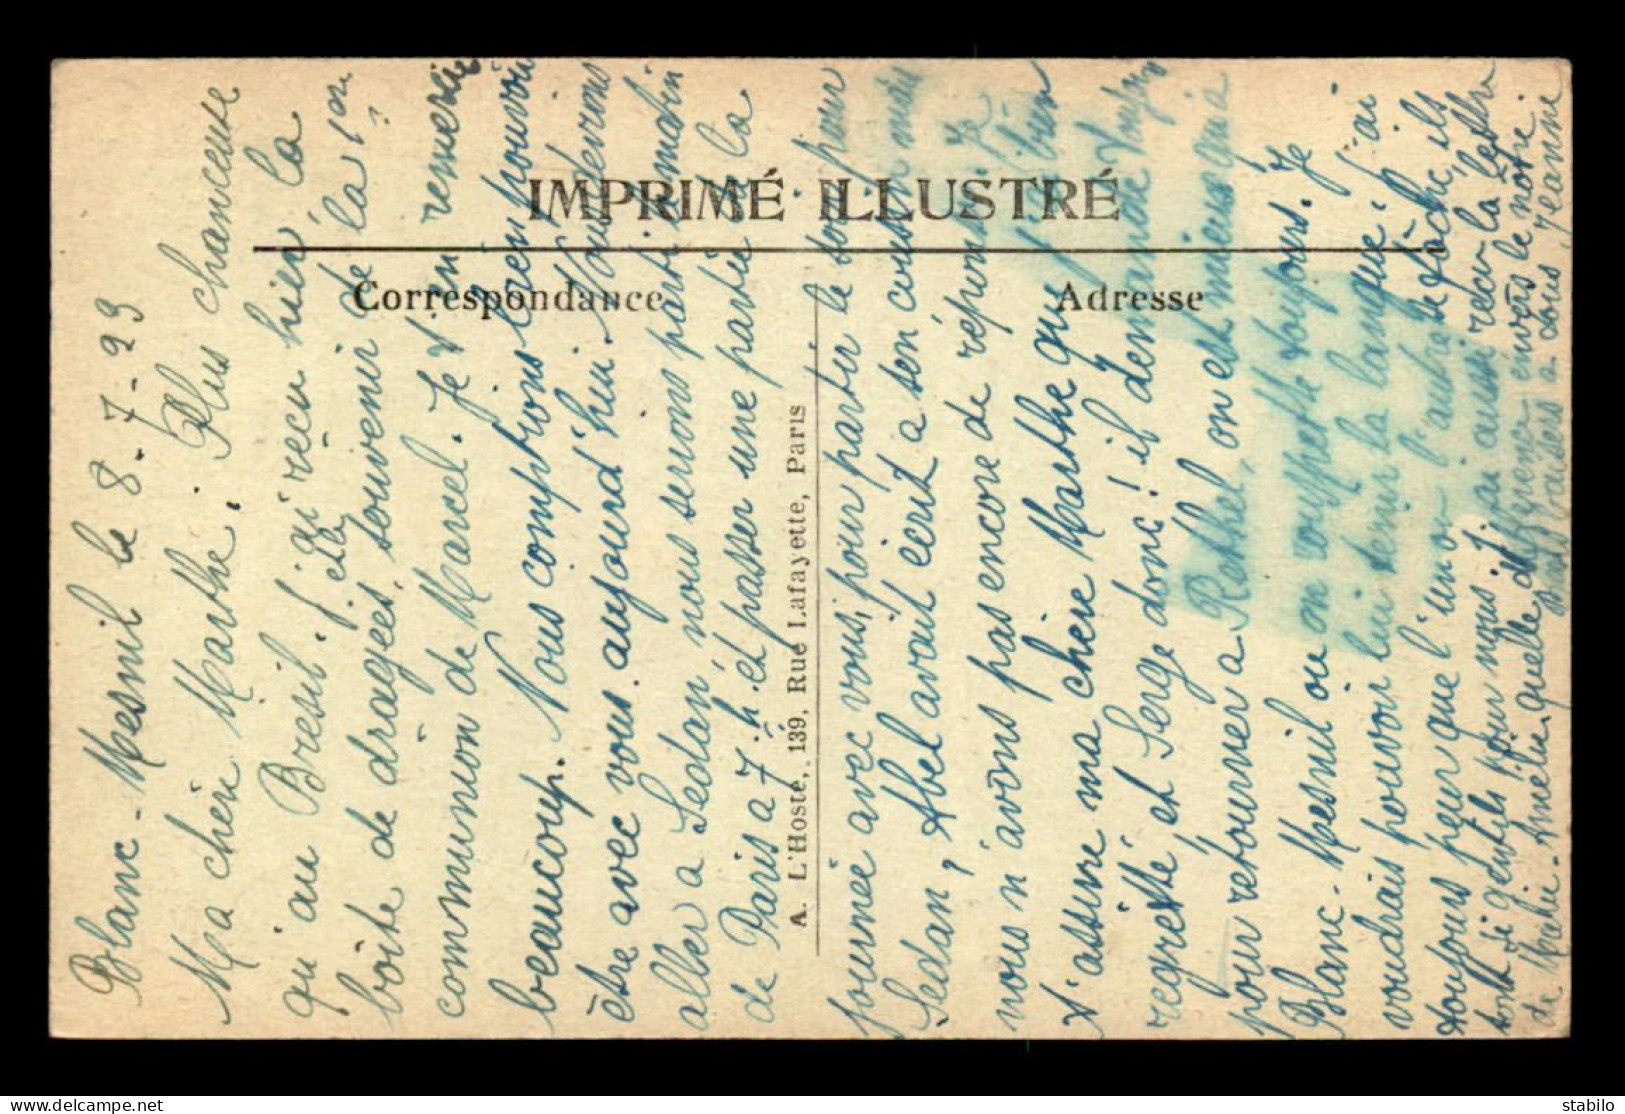 IMPRIMÉ ILLUSTRÉ
Correspondance
Adresse
A. L'Hoste, 139, Rue Lafayette, Paris.
Blanc-Mesnil le 8-7-23
Ma chère Marthe. Plus chanceuse
qu'au Bresil. j'ai reçu hier la
boîte de dragées, souvenir de la 1re
communion de Marcel. Je t'en remercie
beaucoup. Nous comptions bien pouvoir
être avec vous aujourd'hui. Nous devions
aller a Sedan nous serions parti le matin
de Paris a 7h et passer une partie de la
journée avec vous, pour partir le soir pour
Sedan, Abel avait écrit a son cousin mais
nous n'avons pas encore de réponse. Je
t'assure ma chère Marthe que j'ai bien
regretté, et Serge donc! il demande
pour retourner a Rethel, on est mieux qu'a
Blanc-Mesnil ou on toujours. Je
voudrais pouvoir lui tenir la langue j'ai
toujours peur que l'un ou l'autre se fâche, ils
sont si gentils pour nous. J'ai aussi reçu la lettre
de Marie-Amélie, quelle différence envers le nôtre
Bons baisers a tous, Jeanne
stabilo